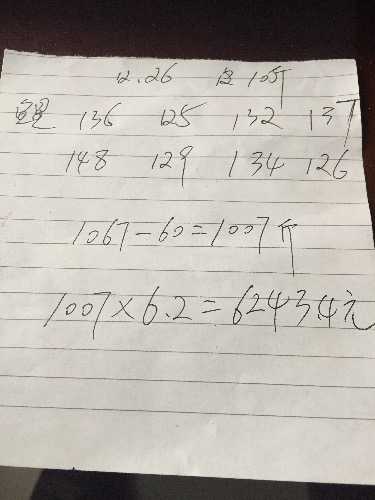 12.26 10斤
136 125 132 137
148 129 134 126
1067-60=1007斤
1007×6.2=6243.4元